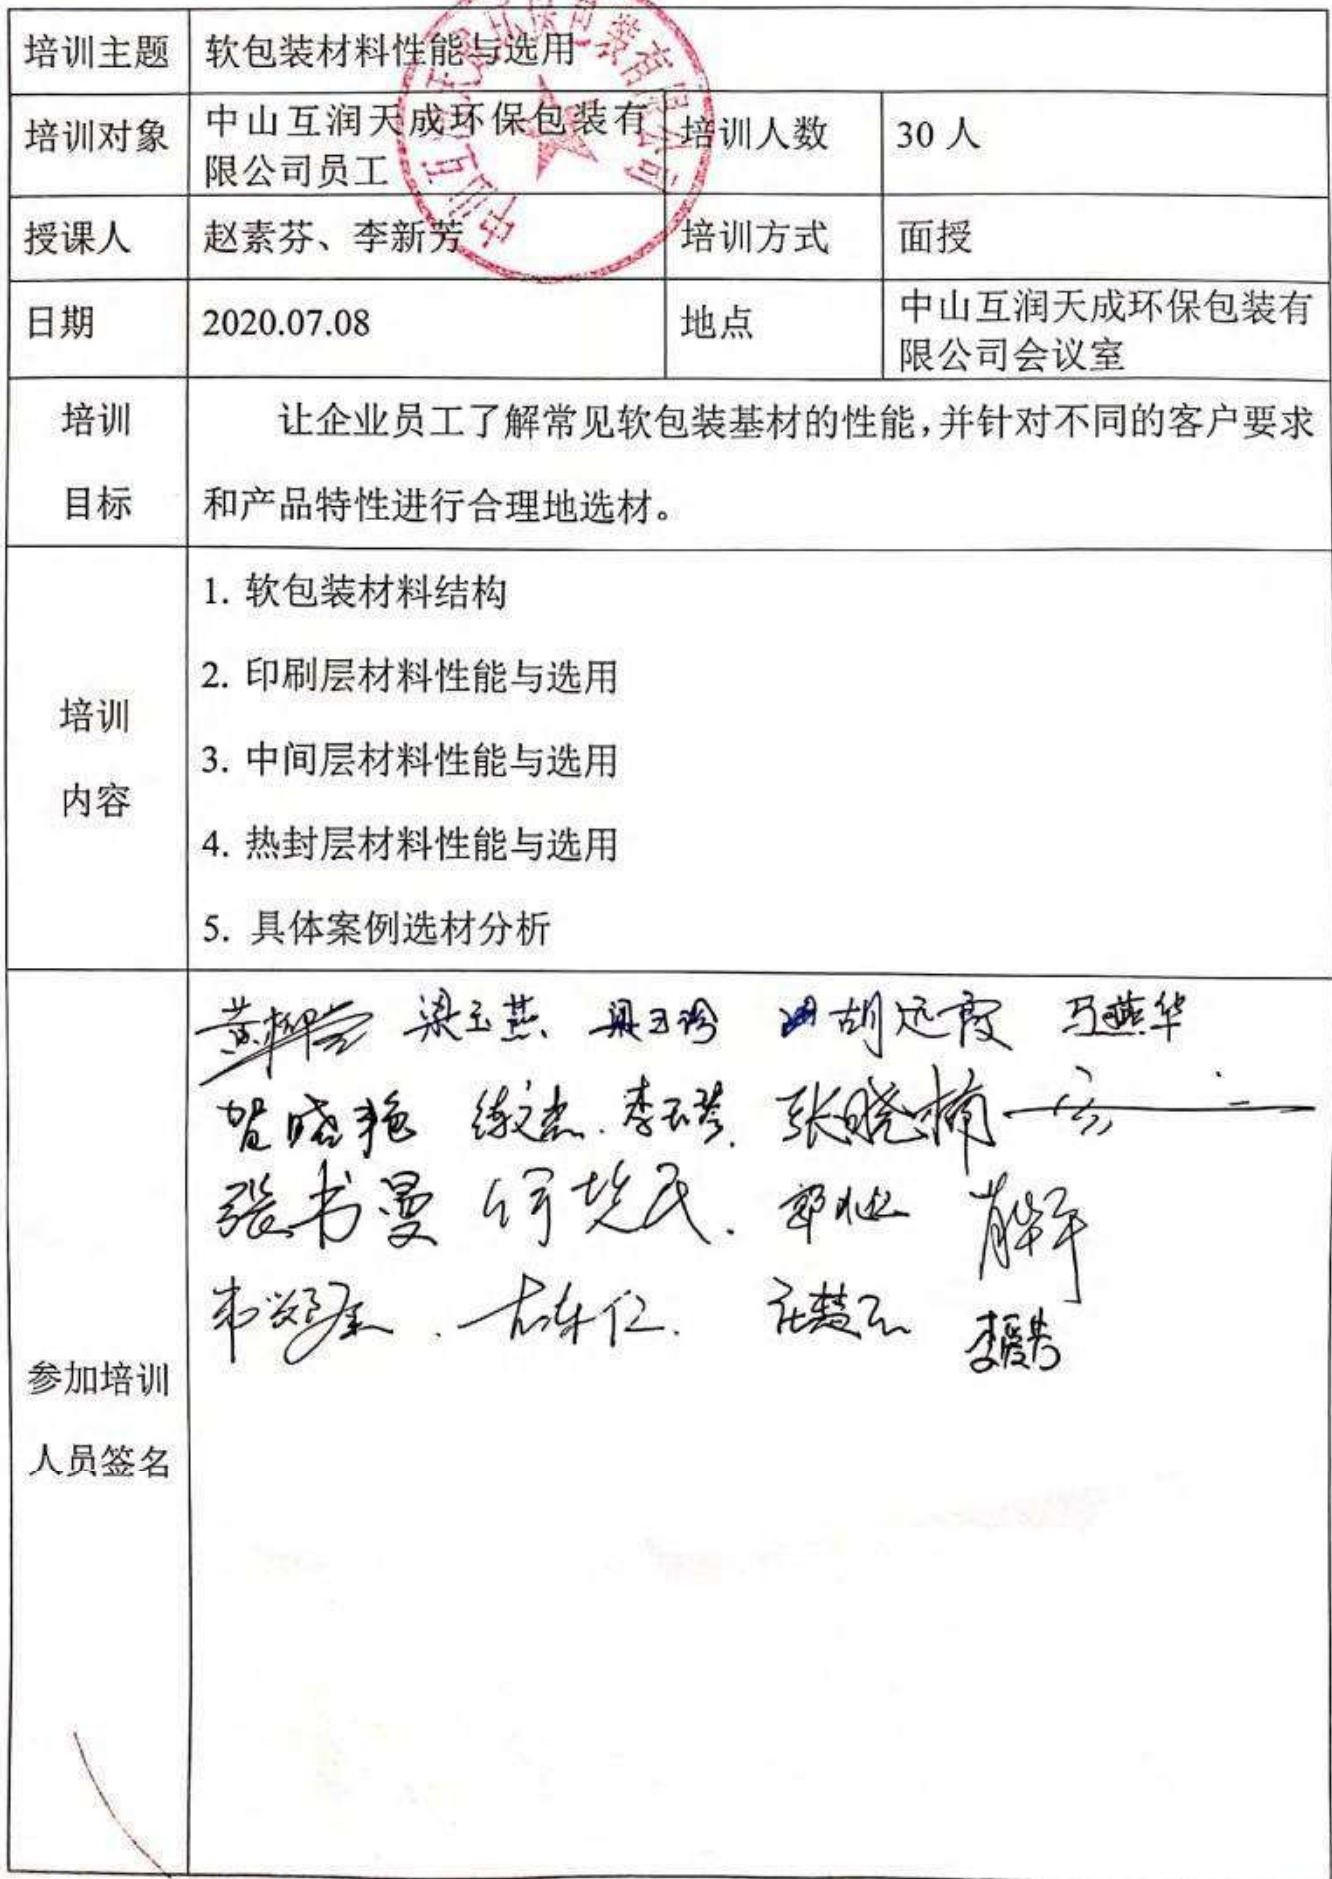 培训主题 软包装材料性能与选用
培训对象 中山互润天成环保包装有限公司员工 培训人数 30 人
授课人 赵素芬、李新芳 培训方式 面授
日期 2020.07.08 地点 中山互润天成环保包装有限公司会议室
培训
目标
让企业员工了解常见软包装基材的性能,并针对不同的客户要求
和产品特性进行合理地选材。
培训
内容
1. 软包装材料结构
2. 印刷层材料性能与选用
3. 中间层材料性能与选用
4. 热封层材料性能与选用
5. 具体案例选材分析
参加培训
人员签名
梁玉燕 梁玉珍 胡远霞 马燕华
贺晓艳 张晓楠
张书曼
中山互润天成环保包装有限公司